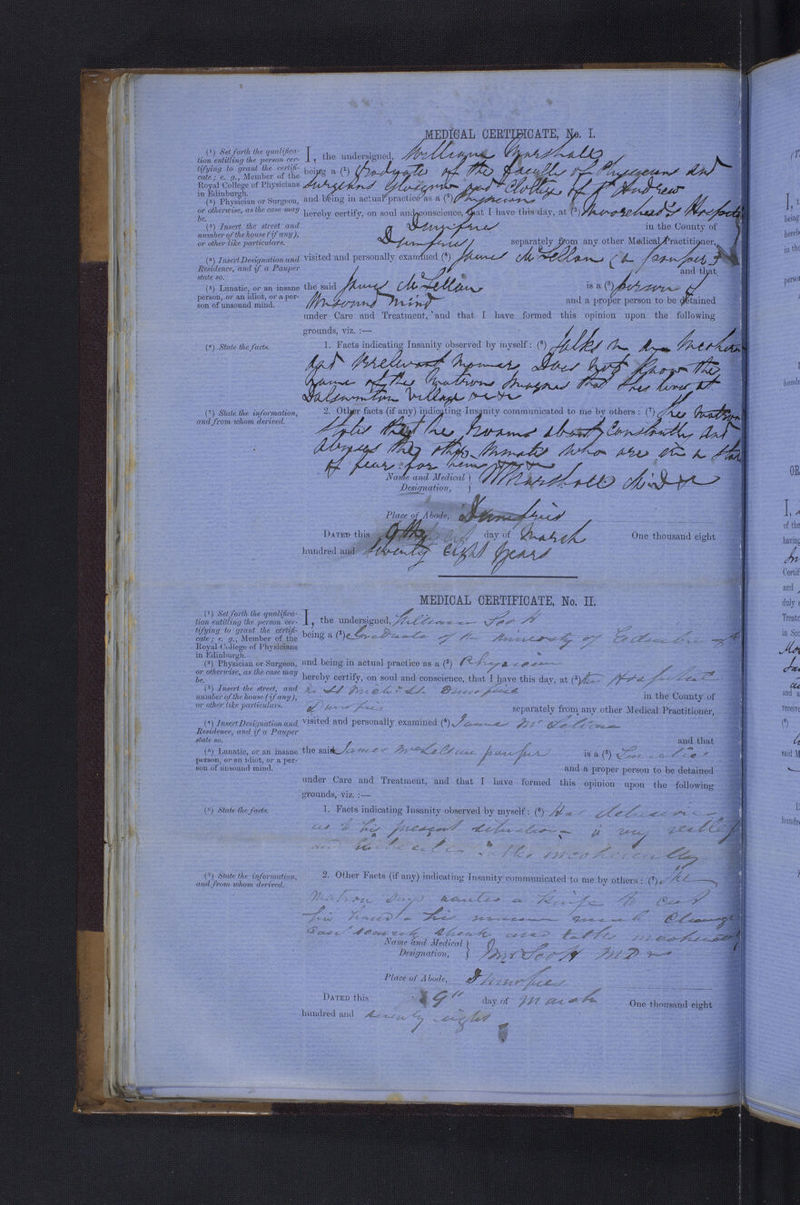 MEDICAL CERTIFICATE, No. I.
(¹) Set forth the qualifica-
tion entitling the person cer-
tifying to grant the certifi-
cate; e. g., Member of the
Royal College of Physicians
in Edinburgh.
(²) Physician or Surgeon,
or otherwise, as the case may
be.
(³) Insert the street and
number of the house (if any),
or other like particulars.
(⁴) Insert Designation and
Residence, and if a Pauper
state so.
(⁵) Lunatic, or an insane
person, or an idiot, or a per-
son of unsound mind.
(⁶) State the facts.
(⁷) State the information,
and from whom derived.
I, the undersigned, William Marshall
being a (¹) Graduate of the Faculty of Physicians and
Surgeons Glasgow and College of St Andrew
and being in actual practice as a (²) Physician
hereby certify, on soul and conscience, that I have this day, at (³) Moorhead's Hospital
Dumfries in the County of
Dumfries separately from any other Medical Practitioner,
visited and personally examined (⁴) James McLellan (a pauper)
and that
the said James McLellan is a (⁵) person of
Unsound Mind and a proper person to be detained
under Care and Treatment, and that I have formed this opinion upon the following
grounds, viz. :—
1. Facts indicating Insanity observed by myself: (⁶) Talks in an incoherent
and irrelevant manner, does not know the
name of the Matron imagines that she lives at
Dalswinton Village
2. Other facts (if any) indicating Insanity communicated to me by others: (⁷) The Matron
states that he roams about constantly and
abuses the other inmates who are in a state
of fear for him
Name and Medical
Designation, } W Marshall M.D
Place of Abode, Dumfries
DATED this 9th day of March One thousand eight
hundred and seventy eight years
MEDICAL CERTIFICATE, No. II.
(¹) Set forth the qualifica-
tion entitling the person cer-
tifying to grant the certifi-
cate; e. g., Member of the
Royal College of Physicians
in Edinburgh.
(²) Physician or Surgeon,
or otherwise, as the case may
be.
(³) Insert the street, and
number of the house (if any),
or other like particulars.
(⁴) Insert Designation and
Residence, and if a Pauper
state so.
(⁵) Lunatic, or an insane
person, or an idiot, or a per-
son of unsound mind.
(⁶) State the facts.
(⁷) State the information,
and from whom derived.
I, the undersigned, William Scott
being a (¹) Graduate of the University of Edinburgh
and being in actual practice as a (²) Physician
hereby certify, on soul and conscience, that I have this day, at (³) the Hospital
in St Mich: St. Dumfries in the County of
Dumfries separately from any other Medical Practitioner,
visited and personally examined (⁴) James McLellan
and that
the said James McLellan pauper is a (⁵) Lunatic
and a proper person to be detained
under Care and Treatment, and that I have formed this opinion upon the following
grounds, viz. :—
1. Facts indicating Insanity observed by myself: (⁶) Has delusions
as to his present situation is very restless
incoherently
2. Other Facts (if any) indicating Insanity communicated to me by others: (⁷) The
Matron says wanted a Knife to cut
his
talks incoherently
Name and Medical
Designation, } Wm Scott MD
Place of Abode, Dumfries
DATED this 9th day of March One thousand eight
hundred and seventy eight